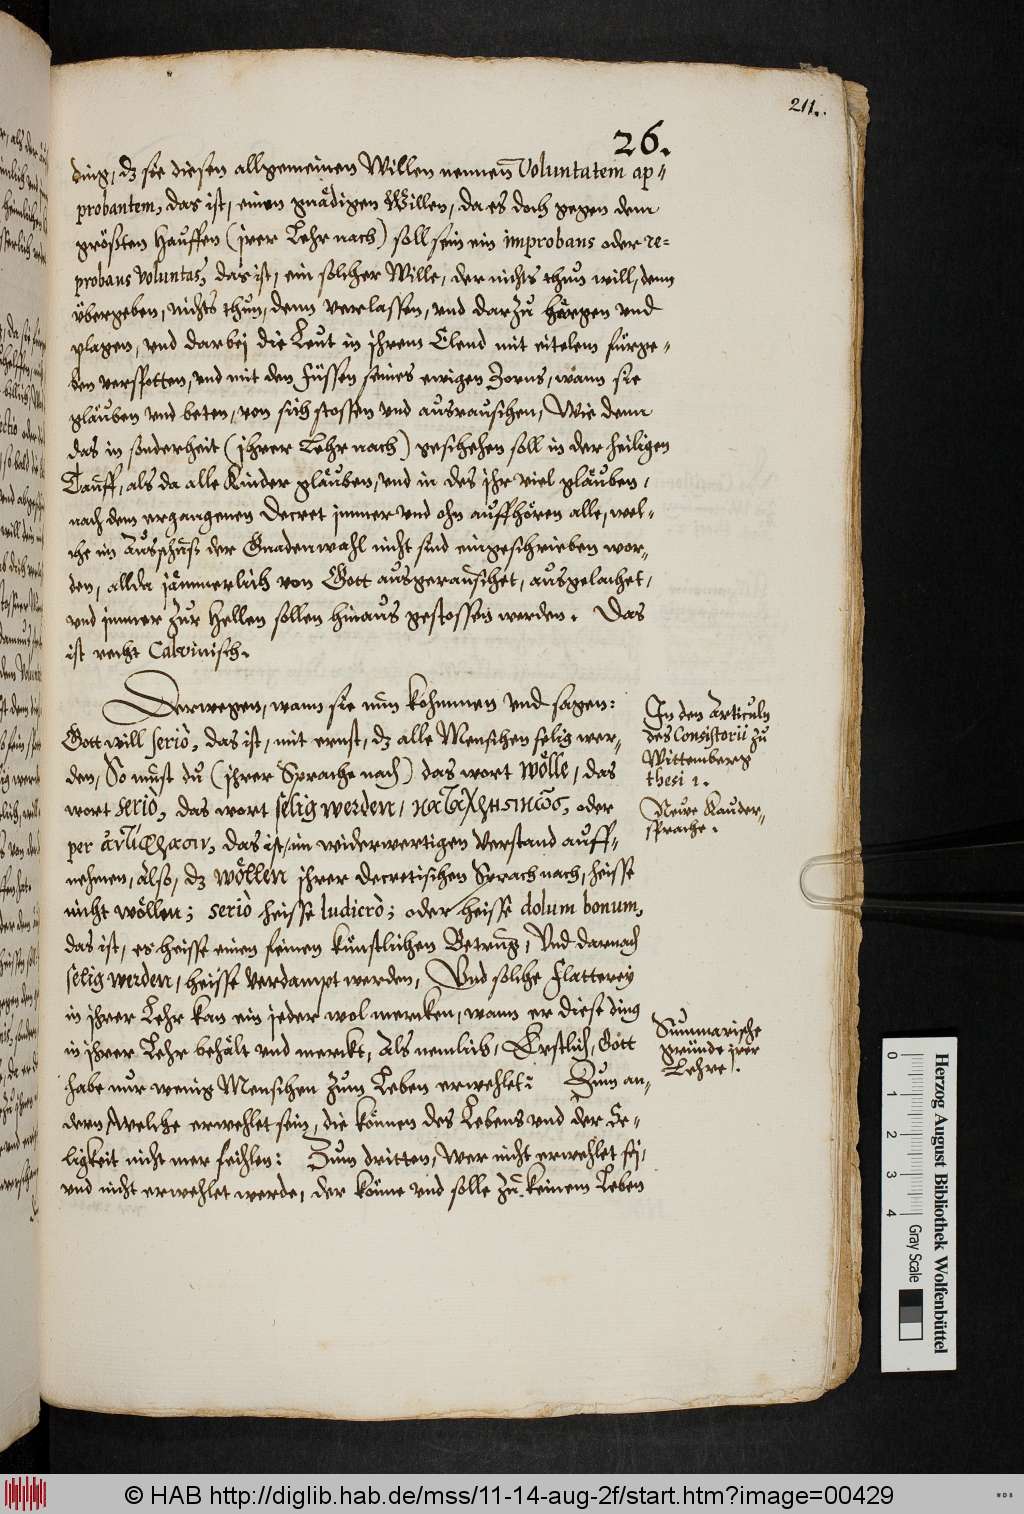 211.
26.
ding, dz sie diesen allgemeinen Willen nennen Voluntatem ap-
probantem, das ist, einen gnädigen Willen, da es doch gegen dem
größten Hauffen (jrer Lehr nach) soll sein ein improbans oder re-
probans voluntas, das ist, ein solcher Wille, der nichts thun will, denn
übergeben, nichts thun, denn verlassen, und darzu und
plagen, und darbej die Leut in jhrem Elend mit eitelem fürge-
den verspotten, und mit den Füssen seines ewigen Zorns, wann sie
gläuben und beten, von sich stossen und ausrauschen, Wie denn
das in sonderheit (jhrer Lehr nach) geschehen soll in der heiligen
Tauff, als da alle Kinder gläuben, und in des jhr viel gläuben,
nach dem ergangenen Decret jmmer und ohn auffhören alle, wel-
che im Ausschuß der Gnadenwahl nicht sind eingeschrieben wor-
den, allda jämmerlich von Gott ausgerauschet, ausgelachet,
und jmmer zur Hellen sollen hinaus gestossen werden. Das
ist recht Calvinisch.
Derwegen, wann sie nun kohmmen und sagen:
Gott will seriò, das ist, mit ernst, dz alle Menschen selig wer-
den, So must du (jhrer Sprache nach) das wort wölle, das
wort seriò, das wort selig werden, oder
per ἀντίφρασιν, das ist, im widerwertigen Verstand auff-
nehmen, also, dz wöllen jhrer decretischen Sprach nach, heisse
nicht wöllen; seriò heisse ludicrò; oder heisse dolum bonum,
das ist, es heisse einen feinen künstlichen Betrug, Und darnach
selig werden, heisse verdampt werden, Und solche Flatterey
in jhrer Lehr kan ein jeder wol mercken, wann er diese ding
in jhrer Lehr behält und merckt, Als nemlich, Erstlich, Gott
habe nur wenig Menschen zum Leben erwehlet: Zum an-
dern, welche erwehlet sein, die können des Lebens und der Se-
ligkeit nicht mer feihlen: Zum dritten, Wer nicht erwehlet sej,
und nicht erwehlet werde, der könne und solle zu keinem Leben
In den Articuln
des Consistorii zu
Wittemberg
thesi 1.
Newe Kauder-
sprache.
Summarische
gründe jrer
Lehre.
Herzog August Bibliothek Wolfenbüttel
0 1 2 3 4
Gray Scale
© HAB http://diglib.hab.de/mss/11-14-aug-2f/start.htm?image=00429